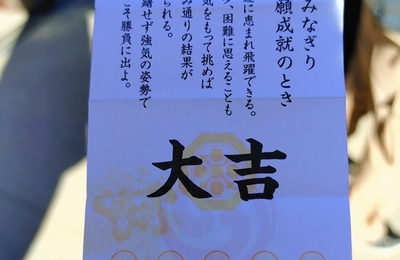 みなぎり
願成就のとき
に恵まれ飛躍できる。
、困難に思えることも
気をもって挑めば
み通りの結果が
られる。
躇せず強気の姿勢で
こそ勝負に出よ。
大吉